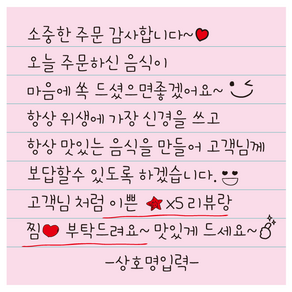 소중한 주문 감사합니다~♥
오늘 주문하신 음식이
마음에 쏙 드셨으면좋겠어요~
항상 위생에 가장 신경을 쓰고
항상 맛있는 음식을 만들어 고객님께
보답할수 있도록 하겠습니다.
고객님 처럼 이쁜 ★x5리뷰랑
찜♥ 부탁드려요~ 맛있게 드세요~
-상호명입력-